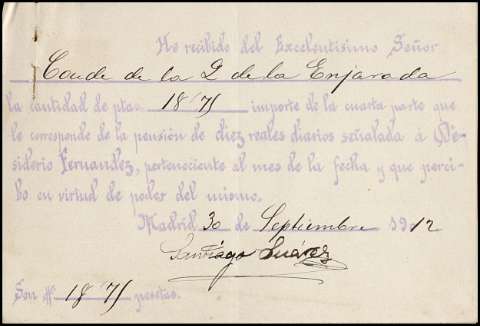 He recibido del Excelentisimo Señor
Conde de la Q de la Enjarada
la cantidad de ptas. 18'75 importe de la cuarta parte que
le corresponde de la pensión de diez reales diarios señalada á De-
siderio Fernandez, perteneciente al mes de la fecha y que perci-
bo en virtud de poder del mismo.
Madrid 30 de Septiembre 1912
Santiago Suárez
Son # 18'75 pesetas.